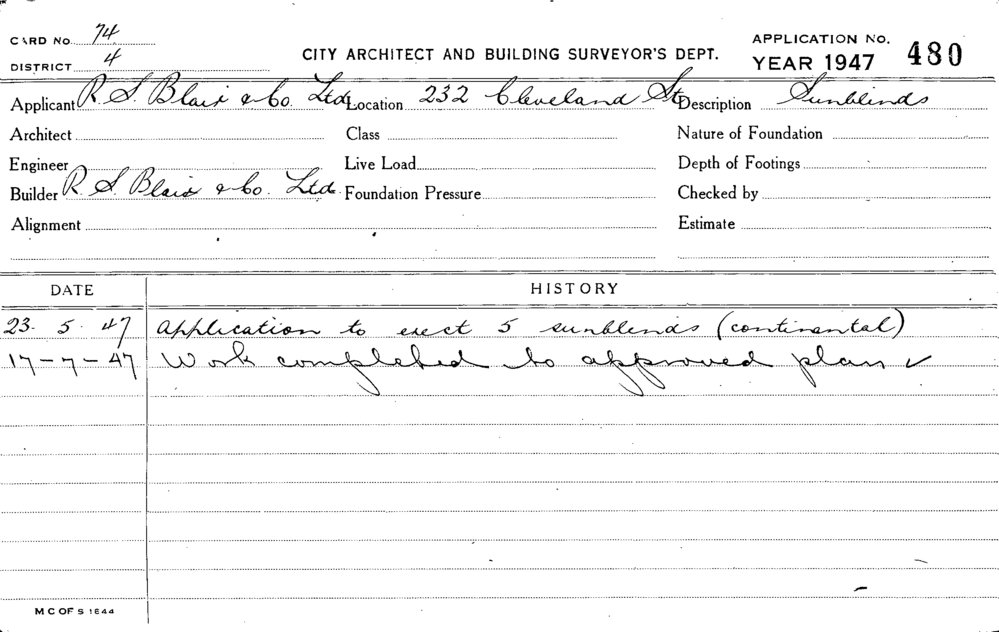 CARD No. 74
DISTRICT 4
CITY ARCHITECT AND BUILDING SURVEYOR'S DEPT.
APPLICATION NO. 480
YEAR 1947
Applicant R. S. Blair & Co. Ltd. Location 232 Cleveland St. Description Sunblinds
Architect Class Nature of Foundation
Engineer Live Load Depth of Footings
Builder R. S. Blair & Co. Ltd. Foundation Pressure Checked by
Alignment Estimate
DATE HISTORY
23. 5. 47 Application to erect 5 sunblinds (continental)
17-7-47 Work completed to approved plan ✓
M C OF S 1644